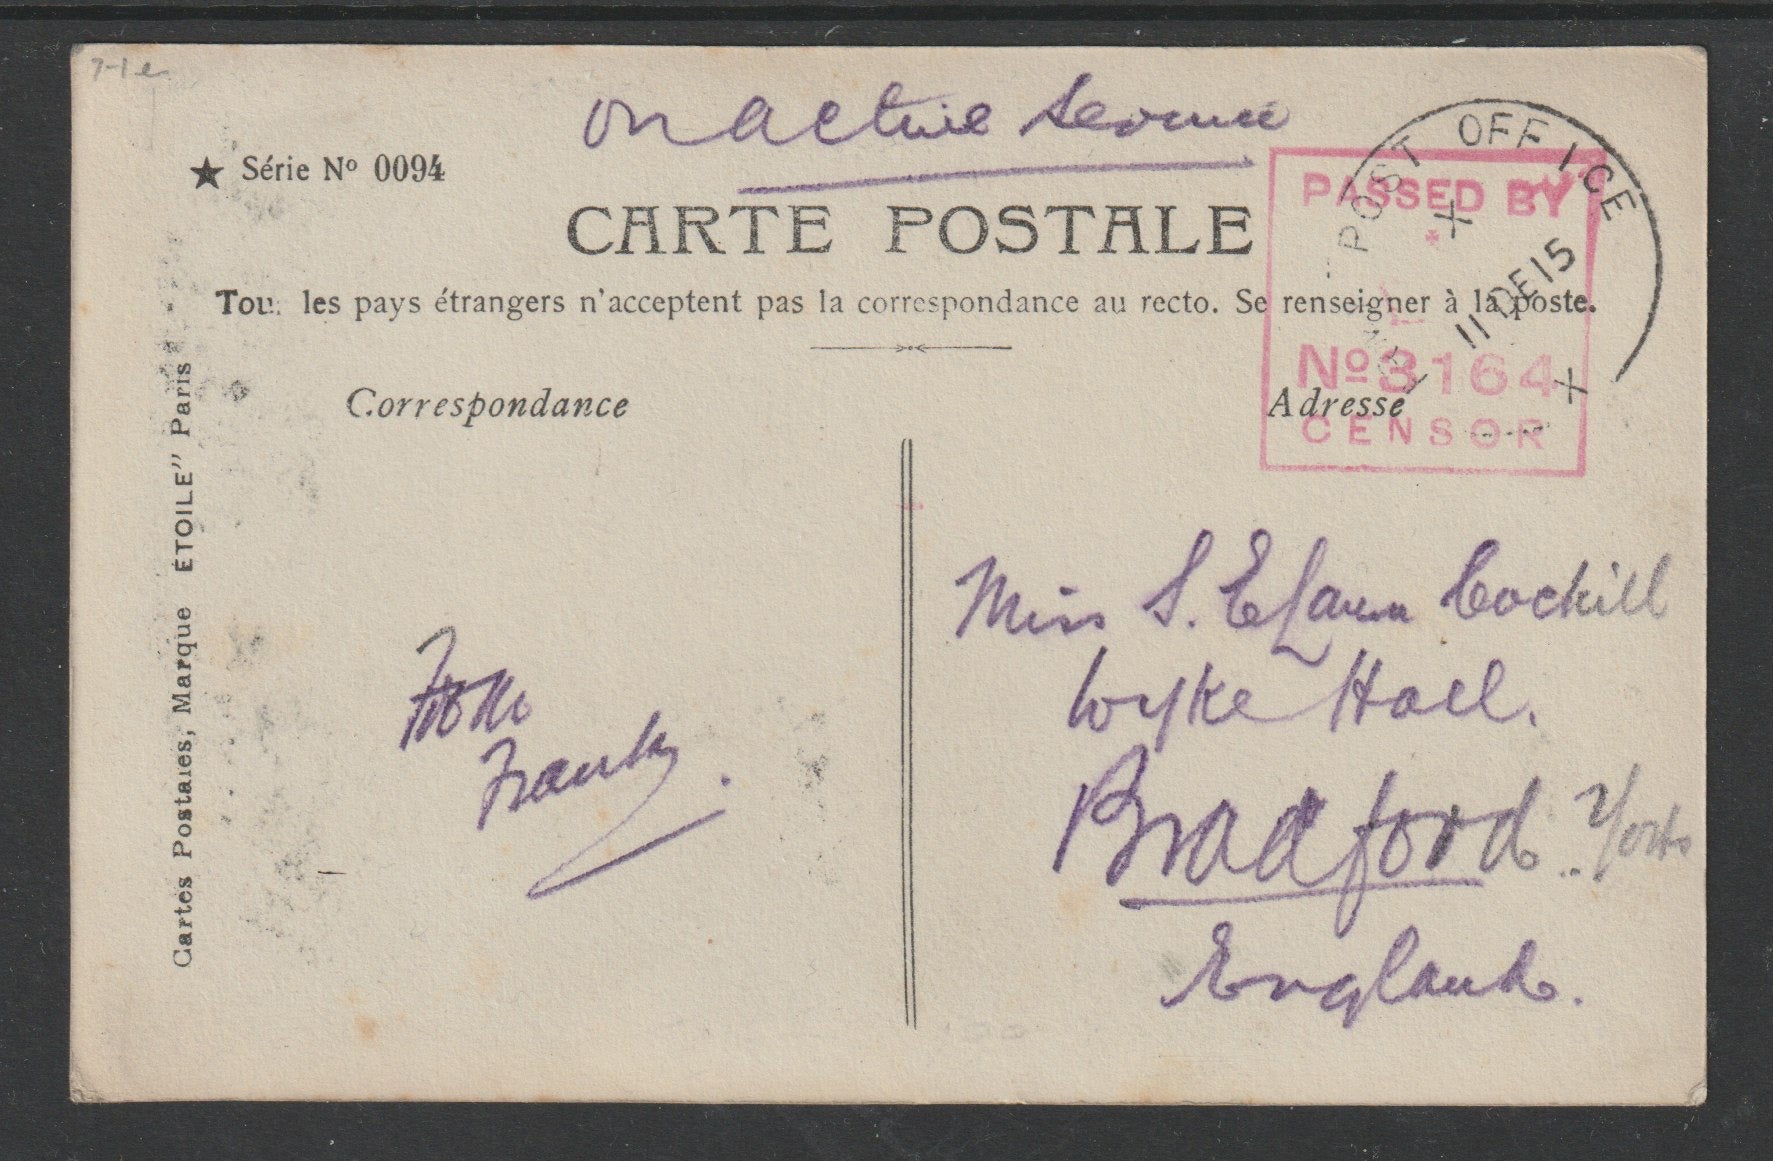 On Active Service
★ Série Nº 0094
CARTE POSTALE
Tous les pays étrangers n'acceptent pas la correspondance au recto. Se renseigner à la poste.
Correspondance
Adresse
PASSED BY
Nº 3164
CENSOR
POST OFFICE
X
11 DE 15
X
Cartes Postales, Marque ÉTOILE" Paris
Miss S. Cockill
Wyke Hall.
Bradford. Yorks
England.
From
Frank.